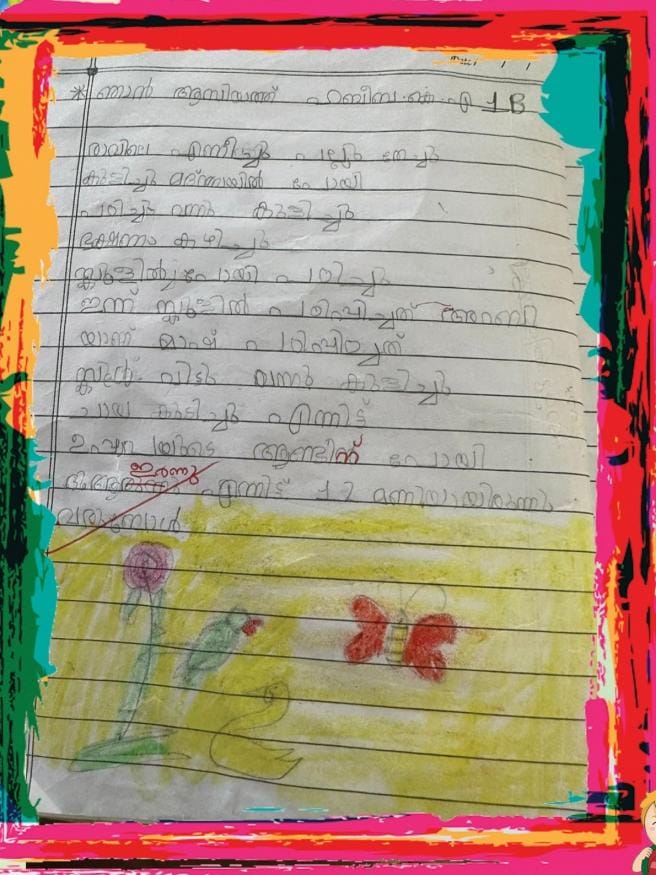 * ഞാൻ ആസിയത്ത് ഹബീബ.കെ.എ 1 B
രാവിലെ എണീച്ചു പല്ലു തേച്ചു
കുളിച്ചു മദ്രസയിൽ പോയി
പഠിച്ചു വന്നു കുളിച്ചു
ഭക്ഷണം കഴിച്ചു
സ്കൂളിൽ പോയി പഠിച്ചു
ഇന്ന് സ്കൂളിൽ പഠിപ്പിച്ചത് അറബി
യാണ് മാഷ് പഠിപ്പിച്ചത്
സ്കൂൾ വിട്ടു വന്നു കുളിച്ചു
ചായ കുടിച്ചു എന്നിട്ട്
ഉപ്പാ യുടെ ആണ്ടിന് പോയി
ഇരുന്നു
എന്നിട്ട് 12 മണിയായിരുന്നു
വരുമ്പോൾ